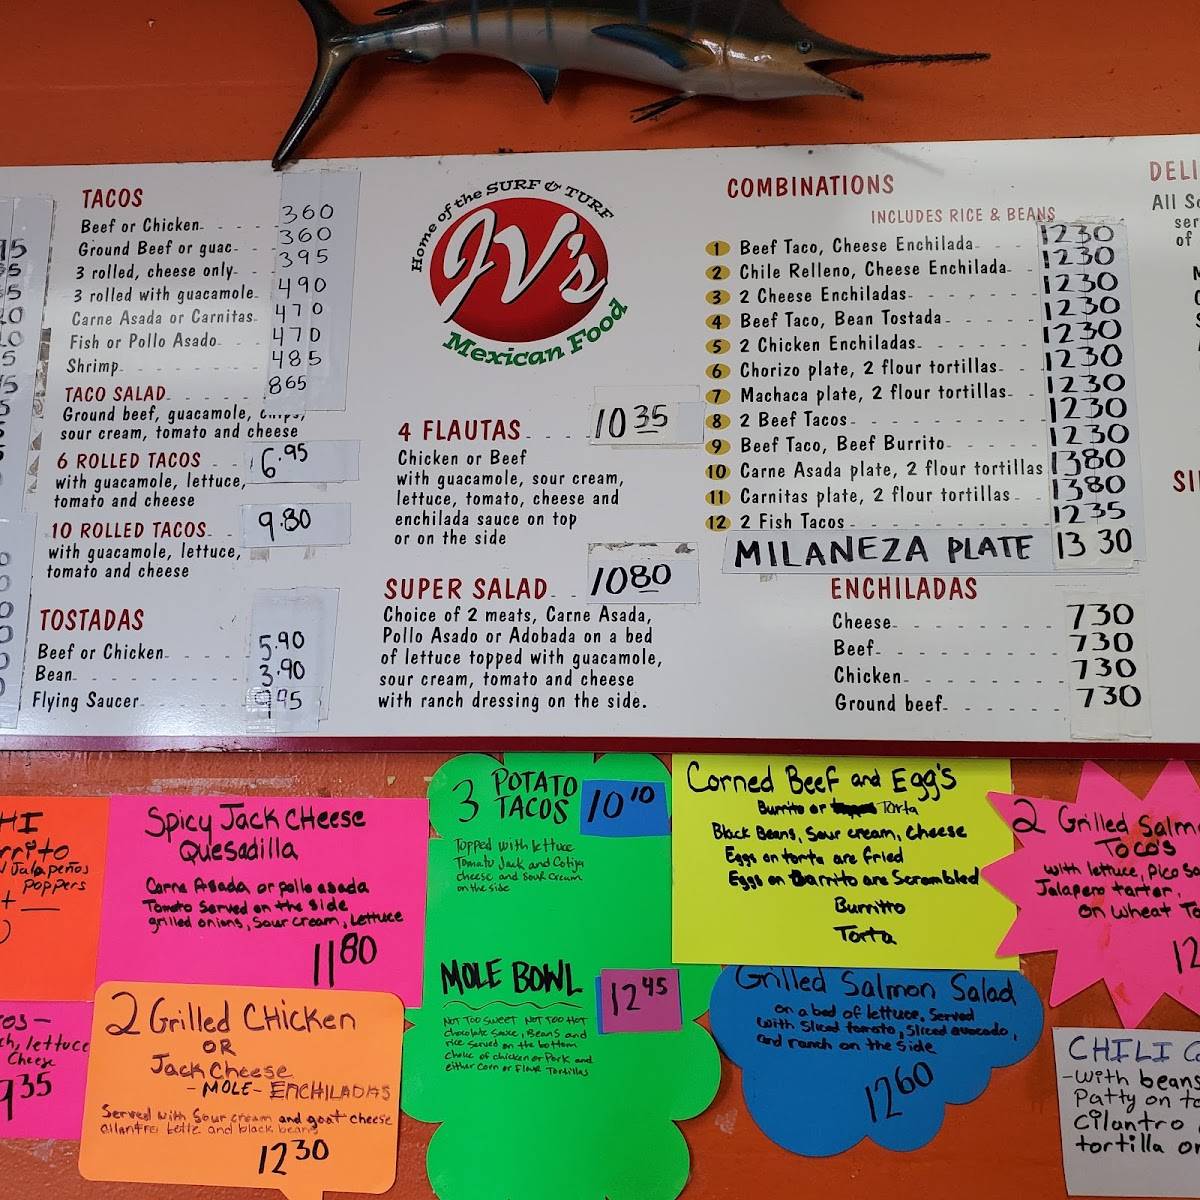 TACOS
Beef or Chicken 360
Ground Beef or guac 360
3 rolled, cheese only 395
3 rolled with guacamole 490
Carne Asada or Carnitas 470
Fish or Pollo Asado 470
Shrimp 485
TACO SALAD 865
Ground beef, guacamole, chips,
sour cream, tomato and cheese
6 ROLLED TACOS 6.95
with guacamole, lettuce,
tomato and cheese
10 ROLLED TACOS 9.80
with guacamole, lettuce,
tomato and cheese
TOSTADAS
Beef or Chicken 5.90
Bean 3.90
Flying Saucer 995
Home of the SURF & TURF
JV's
Mexican Food
4 FLAUTAS 1035
Chicken or Beef
with guacamole, sour cream,
lettuce, tomato, cheese and
enchilada sauce on top
or on the side
SUPER SALAD 1080
Choice of 2 meats, Carne Asada,
Pollo Asado or Adobada on a bed
of lettuce topped with guacamole,
sour cream, tomato and cheese
with ranch dressing on the side.
COMBINATIONS
INCLUDES RICE & BEANS
1 Beef Taco, Cheese Enchilada 1230
2 Chile Relleno, Cheese Enchilada 1230
3 2 Cheese Enchiladas 1230
4 Beef Taco, Bean Tostada 1230
5 2 Chicken Enchiladas 1230
6 Chorizo plate, 2 flour tortillas 1230
7 Machaca plate, 2 flour tortillas 1230
8 2 Beef Tacos 1230
9 Beef Taco, Beef Burrito 1230
10 Carne Asada plate, 2 flour tortillas 1380
11 Carnitas plate, 2 flour tortillas 1380
12 2 Fish Tacos 1235
MILANEZA PLATE 13 30
ENCHILADAS
Cheese 730
Beef 730
Chicken 730
Ground beef 730
DELI
All
of
Jalapeños
Poppers
lettuce
Cheese
935
Spicy Jack CHeese
Quesadilla
Carne Asada or pollo asada
Tomato Served on the side
grilled onions, Sour cream, Lettuce
1180
2 Grilled CHicken
OR
Jack CHeese
- MOLE - ENCHILADAS
Served with Sour cream and goat cheese
and black beans
1230
3 POTATO
TACOS 1010
Topped with lettuce
Tomato Jack and Cotija
cheese and Sour Cream
on the side
MOLE BOWL 1245
NOT TOO SWEET NOT TOO HOT
chocolate Sauce, Beans and
rice Served on the bottom
choice of chicken or Pork and
either Corn or Flour Tortillas
Corned Beef and Egg's
Burrito or Torta
Black Beans, Sour cream, cheese
Eggs on torta are fried
Eggs on Barrito are Scrambled
Burritto
Torta
Grilled Salmon Salad
on a bed of lettuce, Served
with Sliced tomato, Sliced avocado,
and ranch on the side
1260
2 Grilled
Taco's
with lettuce, Pico
Jalapeno tartar,
on wheat
12
CHILI
-with beans
Patty on
Cilantro
tortilla